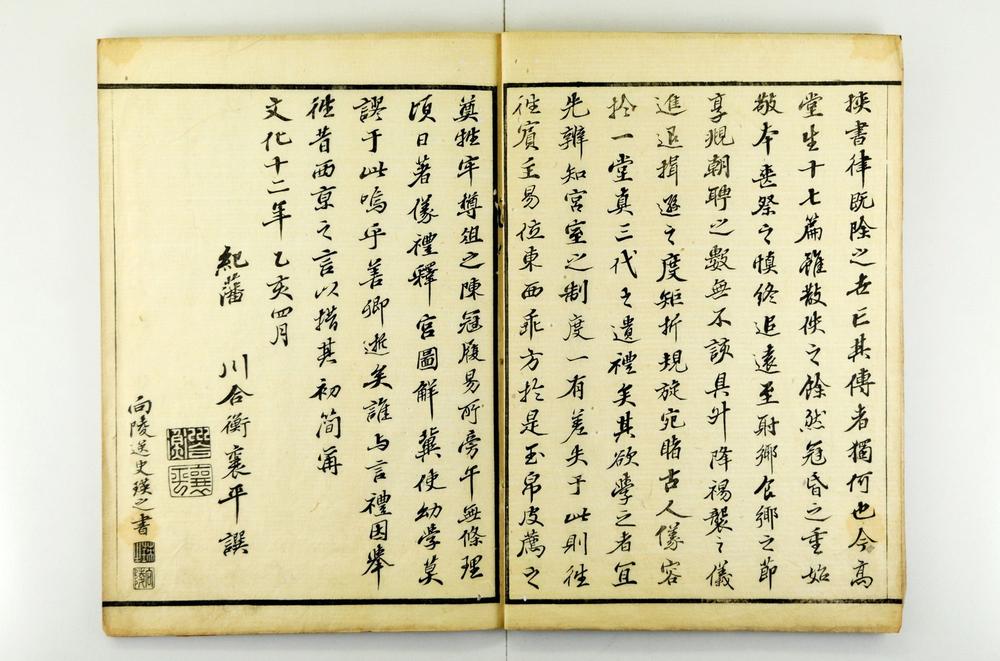 挾書律既除之世亡其傳者獨何也今高
堂生十七篇雖散佚之餘然冠昏之重始
敬本喪祭之慎終追遠至射鄉食鄉之節
享覜朝聘之數無不該具升降裼襲之儀
進退揖遜之度矩折規旋宛睹古人儀容
於一堂真三代之遺禮矣其欲學之者宜
先辨知宮室之制度一有差失于此則往
往賓主易位東西乖方於是玉帛皮薦之
奠牲牢樽俎之陳冠履易所旁午無條理
頃日著儀禮釋宮圖解冀使幼學莫
謬于此嗚乎善卿逝矣誰与言禮因舉
往昔西京之言以措其初簡爾
文化十二年乙亥四月
紀藩 川合衡襄平撰
向陵逸史瑛之書